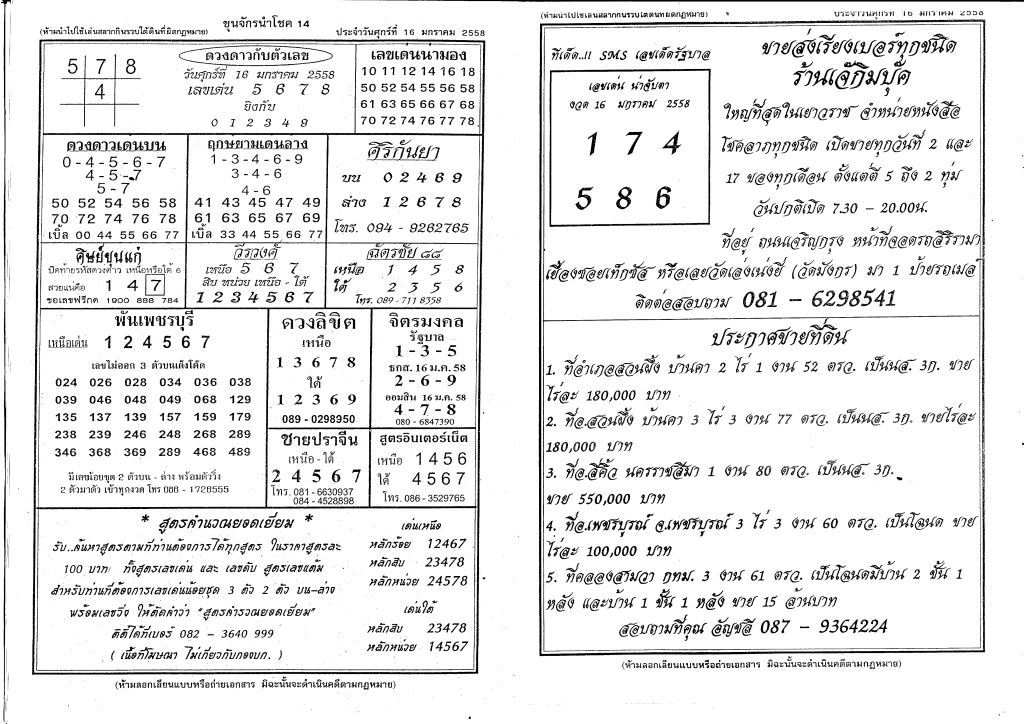 ขุนจักรนำโชค 14
(ห้ามนำไปใช้เล่นสลากกินรวบใต้ดินที่ผิดกฎหมาย) ประจำวันศุกร์ที่ 16 มกราคม 2558
5 7 8
4
ดวงดาวกับตัวเลข
วันศุกร์ที่ 16 มกราคม 2558
เลขเด่น 5 6 7 8
ยิงกับ
0 1 2 3 4 9
เลขเด่นน่ามอง
10 11 12 14 16 18
50 52 54 55 56 58
61 63 65 66 67 68
70 72 74 76 77 78
ดวงดาวเด่นบน
0-4-5-6-7
4-5-7
5-7
50 52 54 56 58
70 72 74 76 78
เบิ้ล 00 44 55 66 77
ฤกษ์ยามเด่นล่าง
1-3-4-6-9
3-4-6
4-6
41 43 45 47 49
61 63 65 67 69
เบิ้ล 33 44 55 66 77
ศิริกันยา
บน 0 2 4 6 9
ล่าง 1 2 6 7 8
โทร. 094 - 9262765
ศิษย์ขุนแก่
สวยแน่คือ 1 4 7
ขอเลขฟรีกด 1900 888 784
วีรวงศ์
เหนือ 5 6 7
สิบ หน่วย เหนือ - ใต้
1 2 3 4 5 6 7
ฉัตรชัย ๘๘
เหนือ 1 4 5 8
ใต้ 2 3 5 6
โทร. 089 - 711 8358
พันเพชรบุรี
เหนือเด่น 1 2 4 5 6 7
เลขไม่ออก 3 ตัวบนเต็งโต๊ด
024 026 028 034 036 038
039 046 048 049 068 129
135 137 139 157 159 179
238 239 246 248 268 289
346 368 369 289 468 489
มีเลขน้อยชุด 2 ตัวบน - ล่าง พร้อมตัววิ่ง
2 ตัวมาตัว เข้าทุกงวด โทร 086 - 1728555
ดวงลิขิต
เหนือ
1 3 6 7 8
ใต้
1 2 3 6 9
089-0298950
จิตรมงคล
รัฐบาล
1-3-5
ธกส. 16 ม.ค. 58
2-6-9
ออมสิน 16 ม.ค. 58
4-7-8
080 - 6847390
ชายปราจีน
เหนือ - ใต้
2 4 5 6 7
โทร. 081 - 6630937
084 - 4528898
สูตรอินเตอร์เน็ต
เหนือ 1 4 5 6
ใต้ 4 5 6 7
โทร. 086 - 3529765
* สูตรคำนวณยอดเยี่ยม *
รับ..ค้นหาสูตรตามที่ท่านต้องการได้ทุกสูตร ในราคาสูตรละ
100 บาท ทั้งสูตรเลขเด่น และ เลขดับ สูตรเลขแต้ม
สำหรับท่านที่ต้องการเลขเด่นน้อยชุด 3 ตัว 2 ตัว บน-ล่าง
พร้อมเลขวิ่ง ให้ตัดคำว่า "สูตรคำรวณยอดเยี่ยม"
ติดได้ที่เบอร์ 082 - 3640 999
( เนื้อที่โฆษณา ไม่เกี่ยวกับกองบก. )
เด่นเหนือ
หลักร้อย 12467
หลักสิบ 23478
หลักหน่วย 24578
เด่นใต้
หลักสิบ 23478
หลักหน่วย 14567
(ห้ามลอกเลียนแบบหรือถ่ายเอกสาร มิฉะนั้นจะดำเนินคดีตามกฎหมาย)
(ห้ามนำไปใช้เล่นสลากกินรวบใต้ดินที่ผิดกฎหมาย) ประจำวันศุกร์ที่ 16 มกราคม 2558
ทีเด็ด..!! SMS เลขเด็ดรัฐบาล
เลขเด่น น่าจับตา
งวด 16 มกราคม 2558
1 7 4
5 8 6
ขายส่งเรียงเบอร์ทุกชนิด
ร้านเจ๊กิมบุ๊ค
ใหญ่ที่สุดในเยาวราช จำหน่ายหนังสือ
โชคลาภทุกชนิด เปิดขายทุกวันที่ 2 และ
17 ของทุกเดือน ตั้งแต่ตี 5 ถึง 2 ทุ่ม
วันปกติเปิด 7.30 - 20.00น.
ที่อยู่ ถนนเจริญกรุง หน้าที่จอดรถสิริรามา
เยื้องซอยเท็กซัส หรือเลยวัดเล่งเน่ยยี่ (วัดมังกร) มา 1 ป้ายรถเมล์
ติดต่อสอบถาม 081 - 6298541
ประกาศขายที่ดิน
1. ที่อำเภอสวนผึ้ง บ้านคา 2 ไร่ 1 งาน 52 ตรว. เป็นนส. 3ก. ขาย
ไร่ละ 180,000 บาท
2. ที่อ.สวนผึ้ง บ้านคา 3 ไร่ 3 งาน 77 ตรว. เป็นนส. 3ก. ขายไร่ละ
180,000 บาท
3. ที่อ.สีคิ้ว นครราชสีมา 1 งาน 80 ตรว. เป็นนส. 3ก.
ขาย 550,000 บาท
4. ที่อ.เพชรบูรณ์ จ.เพชรบูรณ์ 3 ไร่ 3 งาน 60 ตรว. เป็นโฉนด ขาย
ไร่ละ 100,000 บาท
5. ที่คลองสามวา กทม. 3 งาน 61 ตรว. เป็นโฉนดมีบ้าน 2 ชั้น 1
หลัง และบ้าน 1 ชั้น 1 หลัง ขาย 15 ล้านบาท
สอบถามที่คุณ อัญชลี 087 - 9364224
(ห้ามลอกเลียนแบบหรือถ่ายเอกสาร มิฉะนั้นจะดำเนินคดีตามกฎหมาย)